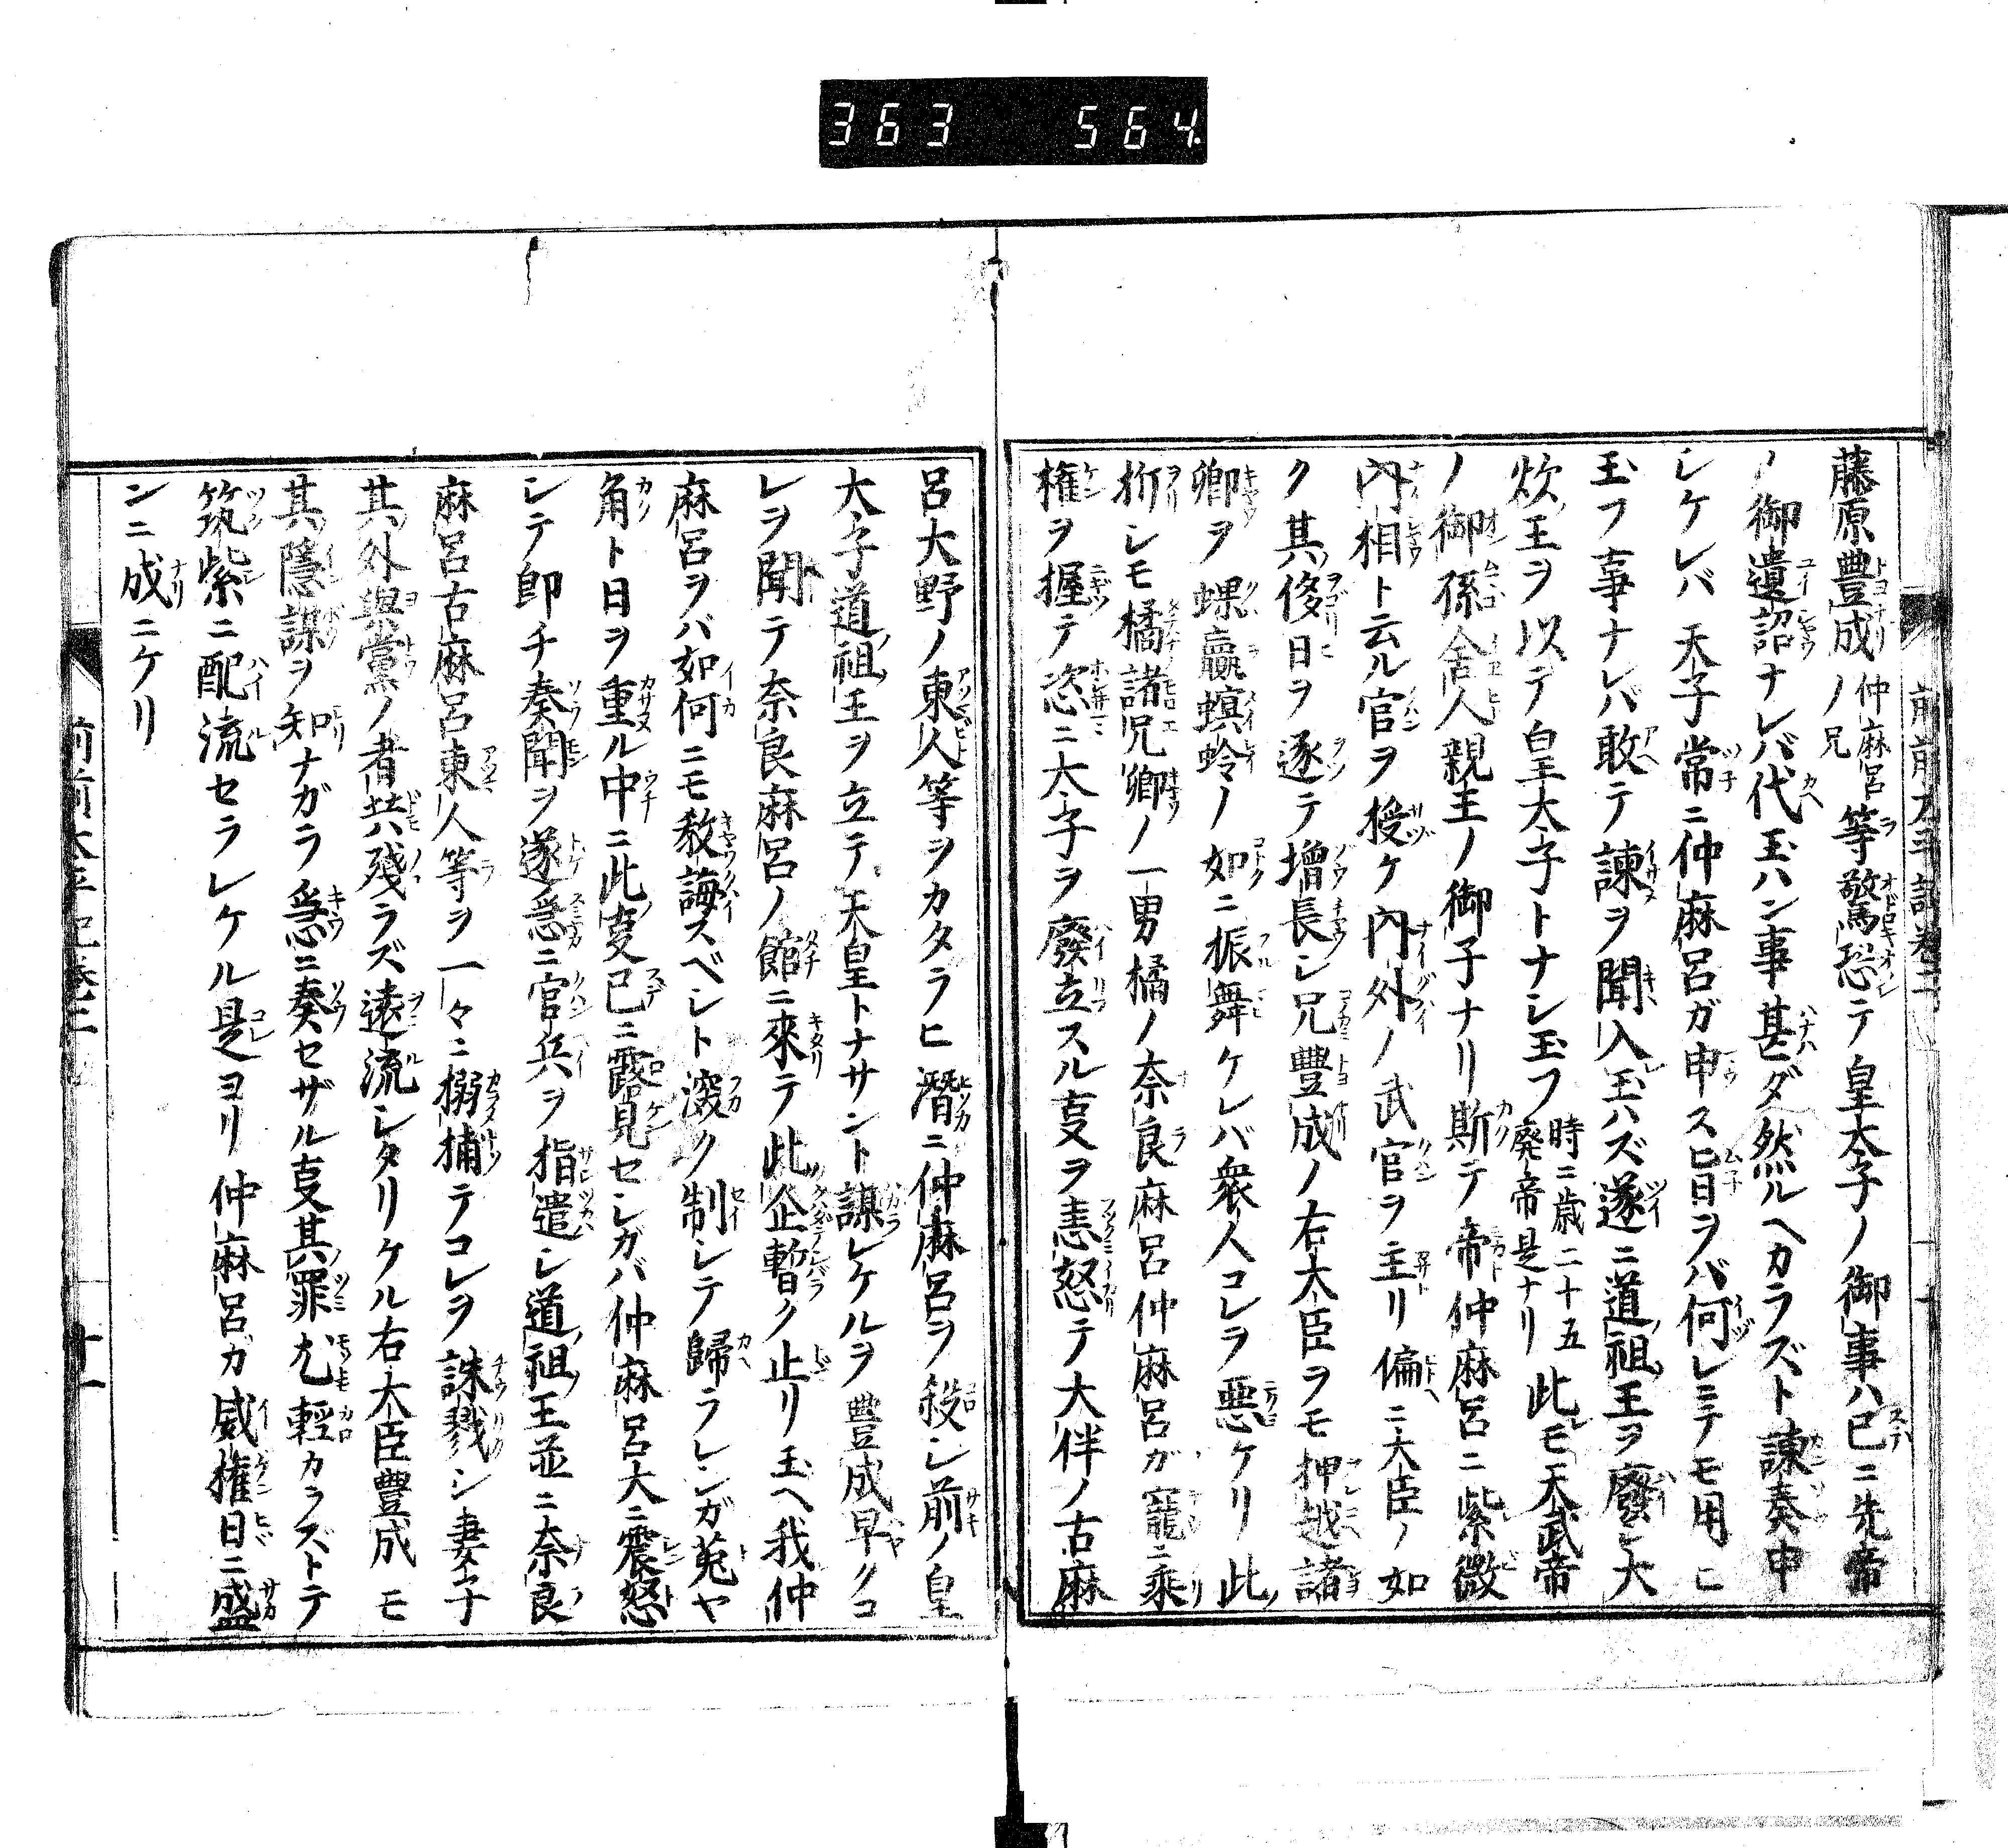 363 564.
藤原豊成仲麻呂ノ兄等驚恐テ皇太子ノ御事ハ已ニ先帝
ノ御遺詔ナレバ代玉ハン事甚ダ然ルヘカラズト諫奏申
シケレバ天子常ニ仲麻呂ガ申ス旨ヲバ何レニテモ用ヒ
玉フ事ナレバ敢テ諫ヲ聞入玉ハズ遂ニ道祖王ヲ廢シ大
炊王ヲ以テ皇太子トナシ玉フ時ニ歳二十五廃帝是ナリ此モ天武帝
ノ御孫舎人親王ノ御子ナリ斯テ帝仲麻呂ニ紫微
内相ト云ル官ヲ授ケ內外ノ武官ヲ主リ偏ニ大臣ノ如
ク其侈日ヲ逐テ增長シ兄豐成ノ右大臣ヲモ押越諸
卿ヲ蜾蠃螟蛉ノ如ニ振舞ケレバ衆人コレヲ惡ケリ此
折シモ橘諸兄卿ノ一男橘ノ奈良麻呂仲麻呂ガ寵ニ乘
権ヲ握テ恣ニ太子ヲ廢立スル叓ヲ恚怒テ大伴ノ古麻
呂大野ノ東人等ヲカタラヒ潛ニ仲麻呂ヲ殺シ前ノ皇
太子道祖王ヲ立テ天皇トナサント謀レケルヲ豊成早クコ
レヲ聞テ奈良麻呂ノ館ニ來テ此企暫ク止リ玉ヘ我仲
麻呂ヲバ如何ニモ敎誨スベシト深ク制シテ歸ラレシガ菟ヤ
角ト日ヲ重ル中ニ此叓已ニ露見セシガバ仲麻呂大ニ震怒
シテ即チ奏聞ヲ遂急ニ官兵ヲ指遣シ道祖王並ニ奈良
麻呂古麻呂東人等ヲ一々ニ搦捕テコレヲ誅戮シ妻子
其外與黨ノ者共殘ラズ遠流シタリケル右大臣豐成モ
其隱謀ヲ知ナガラ急ニ奏セザル叓其罪尤輕カラズトテ
筑紫ニ配流セラレケル是ヨリ仲麻呂カ威権日ニ盛
ンニ成ニケリ
前前太平記卷三
十一